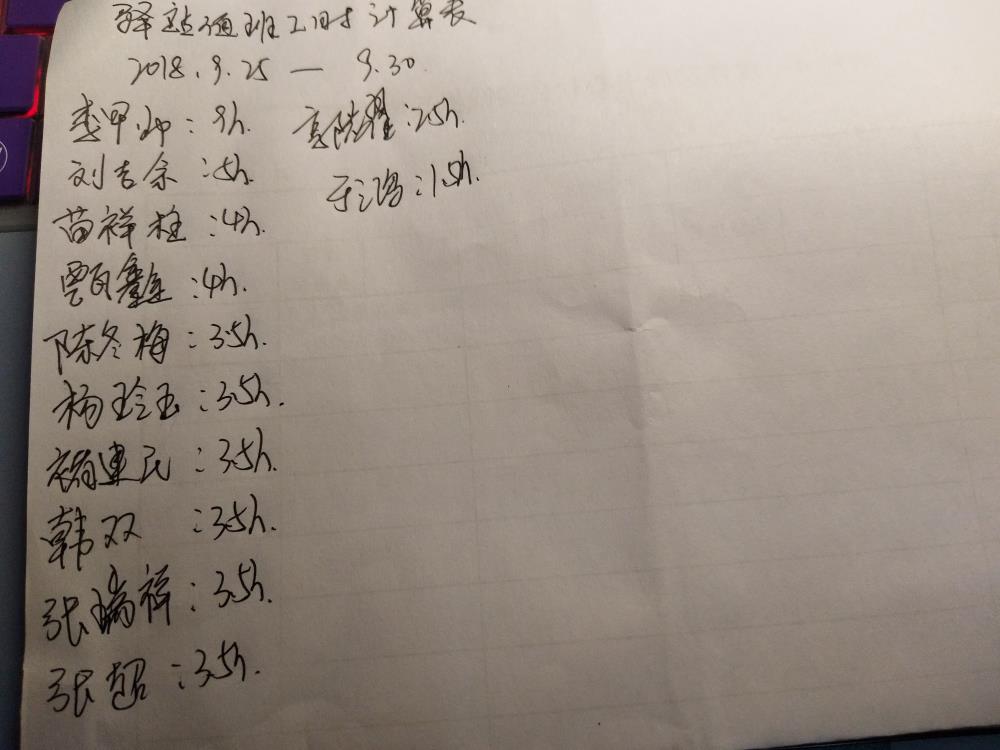 驿站值班工时计算表
2018.9.25 — 9.30.
李甲帅:9h.
刘吉余:5h.
苗祥柱:4h.
贾鑫:4h.
陈冬梅:3.5h.
杨玲玉:3.5h.
褚连民:3.5h.
韩双:3.5h.
张瑞祥:3.5h.
张超:3.5h.
:2.5h.
于鸿:1.5h.